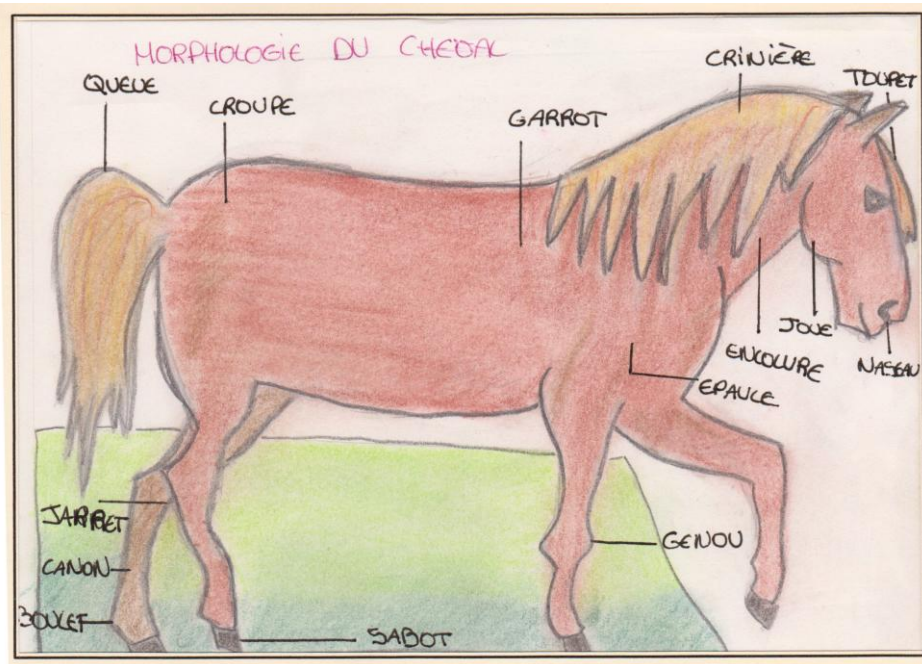 MORPHOLOGIE DU CHEVAL
QUEUE
CROUPE
GARROT
CRINIÈRE
TOUPET
JOUE
ENCOLURE
NASEAU
EPAULE
JARRET
GENOU
CANON
BOULET
SABOT